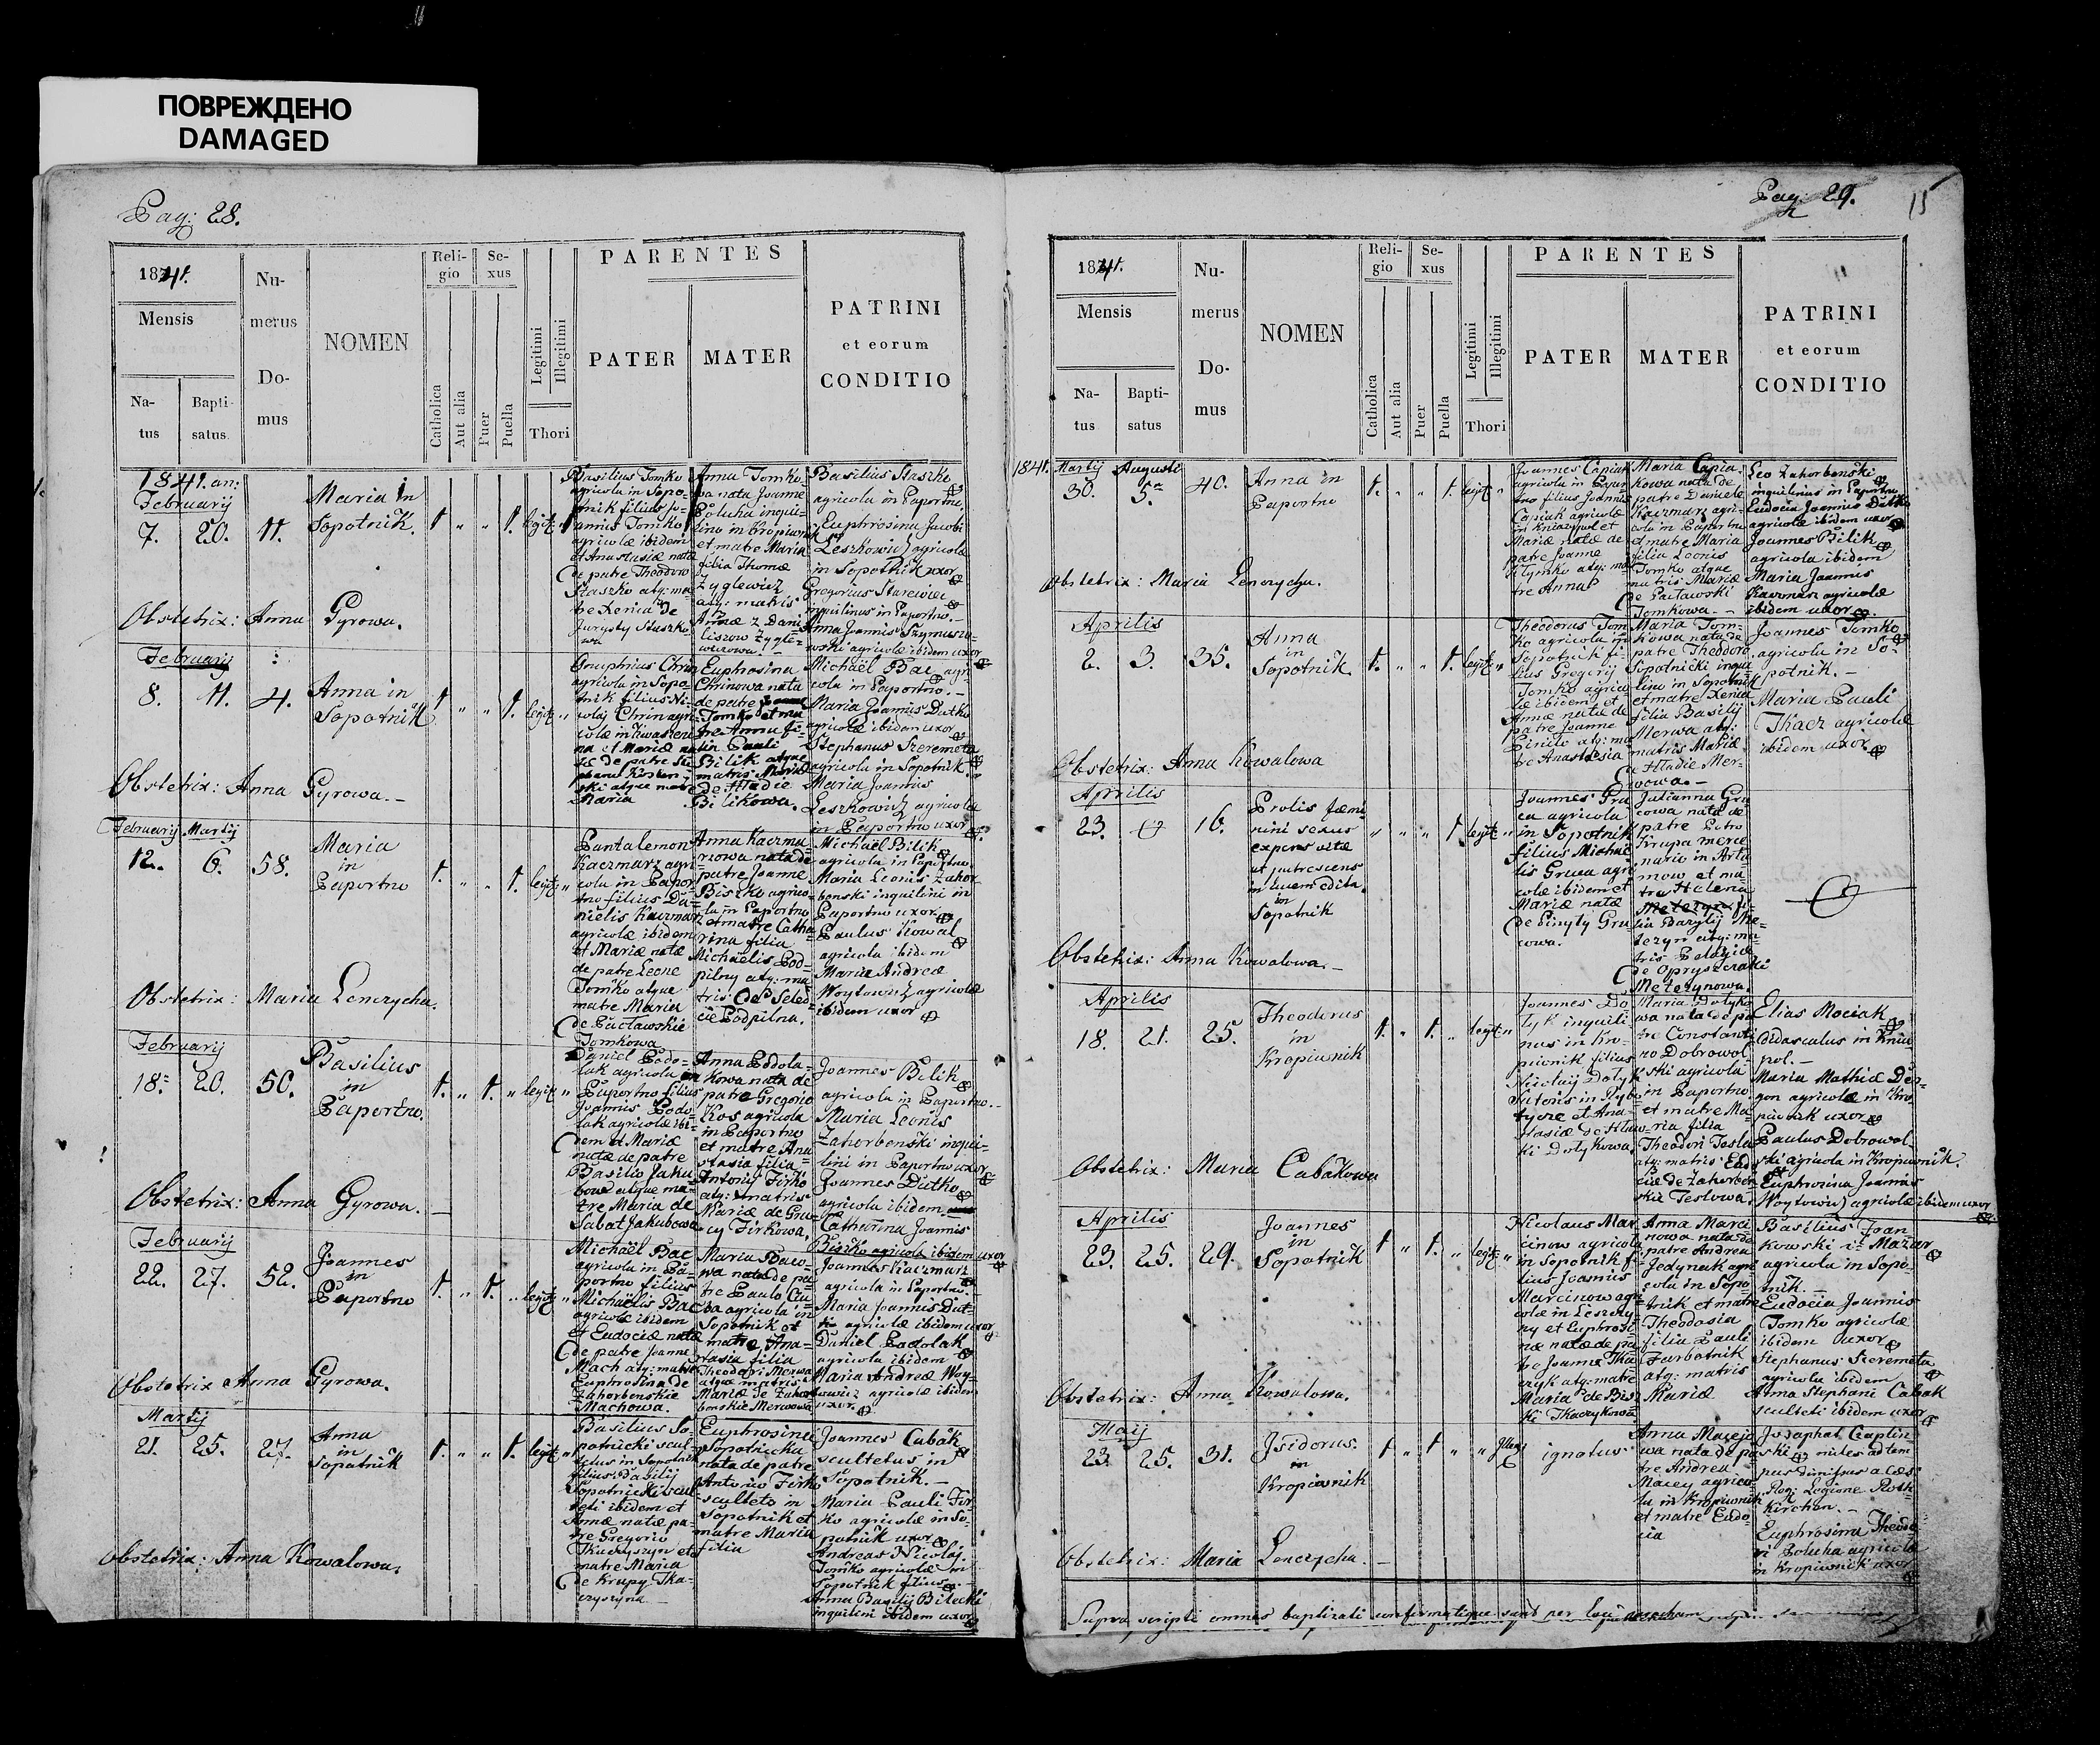 ПОВРЕЖДЕНО
DAMAGED
Pag: 28.
1841.
Mensis
Na-
tus
Bapti-
satus
Nu-
merus
Do-
mus
NOMEN
Reli-
gio
Catholica
Aut alia
Se-
xus
Puer
Puella
Legitimi
Illegitimi
Thori
PARENTES
PATER
MATER
PATRINI
et eorum
CONDITIO
1841. an:
Februarij
7. 20. 11.
Maria in
Sopotnik.
1. „ „ 1. legit: „
Basilius Tomko
agricola in Sopo-
tnik filius Jo-
annis Tomko
agricolæ ibidem
et Anastasiæ natæ
de patre Theodoro
Staszko atq: ma-
tre Xenia de
Anna Tomko-
wa nata Joanne
Połucha inqui-
lino in Kropiwnik
et matre Maria
filia Thomæ
Zyglewicz
atq: matris
Annæ z Dani
Basilius Staszko
agricola in Paportno.
Euphrosina Jacobi
Leszkowicz agricolæ
in Sopotnik uxor
Gregorius Starewicz
inquilinus in Paportno.
Anna Joannis Szymuszo-
wski agricolæ ibidem uxor
Obstetrix: Anna Gyrowa.
Februarij
8. 11. 4.
Anna in
Sopotnik
1. „ „ 1. legit: „
Onuphrius Chrin
agricola in Sopo-
tnik filius Ni-
colaj Chrin agri-
Euphrosina
Chrinowa nata
de patre
Tomko et ma
tre Anna fi-
lia Pauli
Bilik atque
matris Mariæ
de Hladie
Bilikowa.
Michaël Bac agri-
cola in Paportno. –
Maria Joannis Dutko
agricolæ ibidem uxor
Stephanus Szeremeta
agricola in Sopotnik.
Maria Joannis
Leszkowicz agricolæ
in Paportno uxor
Obstetrix: Anna Gyrowa. –
Februarij Martij
12. 6. 58.
Maria
in
Paportno
1. „ „ 1. legit: „
Pantalemon
Kaczmarz agri-
cola in Papor-
tno filius Da-
nielis Kaczmarz
agricolæ ibidem
et Mariæ natæ
de patre Leone
Tomko atque
matre Maria
de Pacławskie
Tomkowa
Anna Kaczma-
rzowa nata de
patre Joanne
Biszko agrico-
la in Paportno
et matre Catha-
rina filia
Michaëlis Pod-
pilny atq: ma-
tris
Podpilna.
Michaël Bilik
agricola in Paportno.
Maria Leonis Zahor-
benski inquilini in
Paportno uxor.
Paulus Kowal
agricola ibidem
Maria Andreæ
Woytowicz agricolæ
ibidem uxor
Obstetrix: Maria Lenczycha.
Februarij
18. 20. 50.
Basilius
in
Paportno.
1. „ 1. „ legit: „
Daniel Podo-
lak agricola in
Paportno filius
Joannis Podo-
lak agricolæ ibi-
dem et Mariæ
natæ de patre
Basilio Jaku-
bow atque ma-
tre Maria de
Sabat Jakubowa
Anna Podola-
kowa nata de
patre Gregorio
Kos agricola
in Paportno
et matre Ana
stasia filia
Antonij Firko
atq: matris
Mariæ de Gru-
cy Firkowa.
Joannes Bilik
agricola in Paportno. –
Maria Leonis
Zahorbenski inqui-
lini in Paportno uxor
Joannes Dutko
agricola ibidem
Catharina Joannis
Biszko agricolæ ibidem uxor
Obstetrix: Anna Gyrowa. –
Februarij
22. 27. 52.
Joannes
in
Paportno
1. „ 1. „ legit: „
Michaël Bac
agricola in Pa-
portno filius
Michaëlis Bac
agricolæ ibidem
et Eudociæ natæ
de patre Joanne
Mach atq: matre
Euphrosina de
Zahorbenskie
Machowa.
Maria Baco-
wa nata de pa-
tre Paulo
agricola in
Sopotnik et
matre Ana-
stasia filia
Theodori Merwa
atque matris
Mariæ de Zahor-
benskie Merwowa
Joannes Kaczmarz
agricola in Paportno. –
Maria Joannis Dut-
ko agricolæ ibidem uxor
Daniel Podolak
agricola ibidem
Maria Andreæ Woy-
towicz agricolæ ibidem
uxor.
Obstetrix Anna Gyrowa.
Martij
21. 25. 27.
Anna
in
Sopotnik
1. „ „ 1. legit: „
Basilius So-
potnicki scul-
tetus in Sopotnik
filius Basilij
Sopotnicki scul-
teti ibidem et
Annæ natæ pa-
tre Gregorio
Tkaczyszyn et
matre Maria
de Krupy Tka-
czyszyna –
Euphrosina
Sopotnicka
nata de patre
Antonio Firko
sculteto in
Sopotnik et
matre Maria
filia
Joannes Cabak
scultetus in
Sopotnik. –
Maria Pauli Fir-
ko agricolæ in So-
potnik uxor
Andreas Nicolaj
Tomko agricolæ in
Sopotnik filius.
Anna Basilij Bilecki
inquilini ibidem uxor
Obstetrix: Anna Kowalowa.
Pag: 29.
15
1841.
Mensis
Na-
tus
Bapti-
satus
Nu-
merus
Do-
mus
NOMEN
Reli-
gio
Catholica
Aut alia
Se-
xus
Puer
Puella
Legitimi
Illegitimi
Thori
PARENTES
PATER
MATER
PATRINI
et eorum
CONDITIO
1841. Martij Augusti
30. 5ta 40.
Anna in
Paportno
1. „ „ 1. legit „
Joannes Capiak
agricola in Papor
tno filius Joannis
Capiak agricolæ
in Kniazypol et
Mariæ natæ de
patre Joanne
Klymko atq: ma-
tre Anna
Maria Capia-
kowa nata de
patre Daniele
Kaczmarz agri-
cola in Paportno
et matre Maria
filia Leonis
Tomko atque
matris Mariæ
de Pacławski
Tomkowa. –
Leo Zahorbenski
inquilinus in Paportno
Eudocia Joannis Dutko
agricolæ ibidem uxor
Joannes Bilik
agricola ibidem
Maria Joannis
Kaczmarz agricolæ
ibidem uxor.
Obstetrix: Maria Lenczycha.
Aprilis
2. 3. 35.
Anna
in
Sopotnik
1. „ „ 1. legit: „
Theodorus Tom
ko agricola in
Sopotnik fi-
lius Gregorij
Tomko agrico
læ ibidem et
Annæ natæ de
patre Joanne
Pinilo atq: ma
tre Anastasia
Maria Tom-
kowa nata de
patre Theodoro
Sopotnicki inqui
lino in Sopotnik
et matre Xenia
filia Basilij
Merwa atq:
matris Mariæ
de Hladie Mer-
wowa. –
Joannes Tomko
agricola in So-
potnik. –
Maria Pauli
Tkacz agricolæ
ibidem uxor
Obstetrix: Anna Kowalowa
Aprilis
23. 16.
Prolis fæmi
nini sexus
expers vitæ
ut putrescens
in lucem edita.
in
Sopotnik
„ „ „ 1 legit: „
Joannes Gru
ca agricola
in Sopotnik
filius Michaë
lis Gruca agri
colæ ibidem et
Mariæ natæ
de Pinyty Gru
cowa.
Julianna Gru
cowa nata de
patre Petro
Krupa merce
nario in Arta
mow et ma-
tre Helena
Metezyn fi-
lia Bazylij Me-
tezyn atq: ma-
tris Pelagiæ
de Opryszczaki
Metezynowa.
Obstetrix: Anna Kowalowa. –
Aprilis
18. 21. 25.
Theodorus
in
Kropiwnik
1. „ 1. „ legit: „
Joannes Do
tyk inquili
nus in Kro-
piwnik filius
Nicolaij Dotyk
sutoris in Rybo-
tycze et Ana-
stasiæ de Hlaw-
ki Dotykowa.
Maria Dotyko
wa nata de pa
tre Constanti
no Dobrowol
ski agricola
in Paportno
et matre Ma-
ria filia
Theodori Tesla
atq: matris Eud
ciæ de Zahorben
skie Teslowa.
Elias Mociak
Didasculus in Kniaz
pol. –
Maria Mathiæ Der-
gon agricolæ in Kro-
piwnik uxor
Paulus Dobrowol
ski agricola in Kropiwnik.
Euphrosina Joannis
Woytowicz agricolæ ibidem uxor
Obstetrix: Maria Cabakowa
Aprilis
23. 25. 29.
Joannes
in
Sopotnik
1 „ 1. „ legit: „
Nicolaus Mar
cinow agricola
in Sopotnik fi-
lius Joannis
Marcinow agri
colæ in Leszczy
ny et Euphrosi
næ natæ de pa
tre Joanne Tka
czyk atq: matre
Maria de Bis
ki Tkaczykowa
Anna Marci
nowa nata de
patre Andrea
Jedynak agri
cola in Sopo-
tnik et matre
Theodosia
filia Pauli
Zarbotnik
atq: matris
Mariæ
Basilius Joan
kowski is Mazur
agricola in Sopo-
tnik. –
Eudocia Joannis
Tomko agricolæ
ibidem uxor
Stephanus Szeremeta
agricola ibidem
Anna Stephani Cabak
sculteti ibidem uxor
Obstetrix: Anna Kowalowa.
Maij
23. 25. 31.
Isidorus.
in
Kropiwnik
1 „ 1 „ „ Illeg
ignotus
Anna Macejo
wa nata de pa
tre Andrea
Macey agrico
la in Kropiwnik
et matre Eudo-
cia
Josaphat Czaplin-
ski miles ad tem
pus dimissus a Cæs:
Reg: Legione Roth-
kirchen. –
Euphrosina Theodo
ri Polucha agricolæ
in Kropiwnik uxor
Obstetrix: Maria Lenczycha. –
Supra scripti omnes baptizati confirmatique sunt per loci parochum